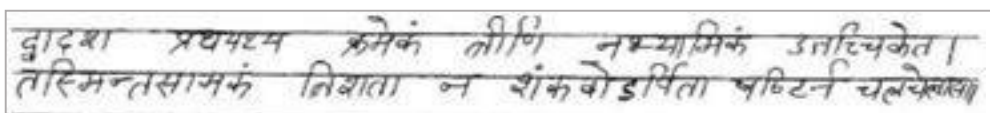 द्वादश प्रथयश्य क्रमेकं त्रीणि नभ्यामिकं उत्तच्चिकेत।
तस्मिन्तसामकं त्रिशता न शंकवोऽर्पिता षष्टिर्न